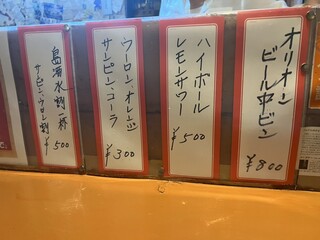 オリオン
ビール中ビン
¥800
ハイボール
レモンサワー
¥500
ウーロン、オレンジ
サンピン、コーラ
¥300
島酒水割一杯
サンピン、ウーロン割
¥500